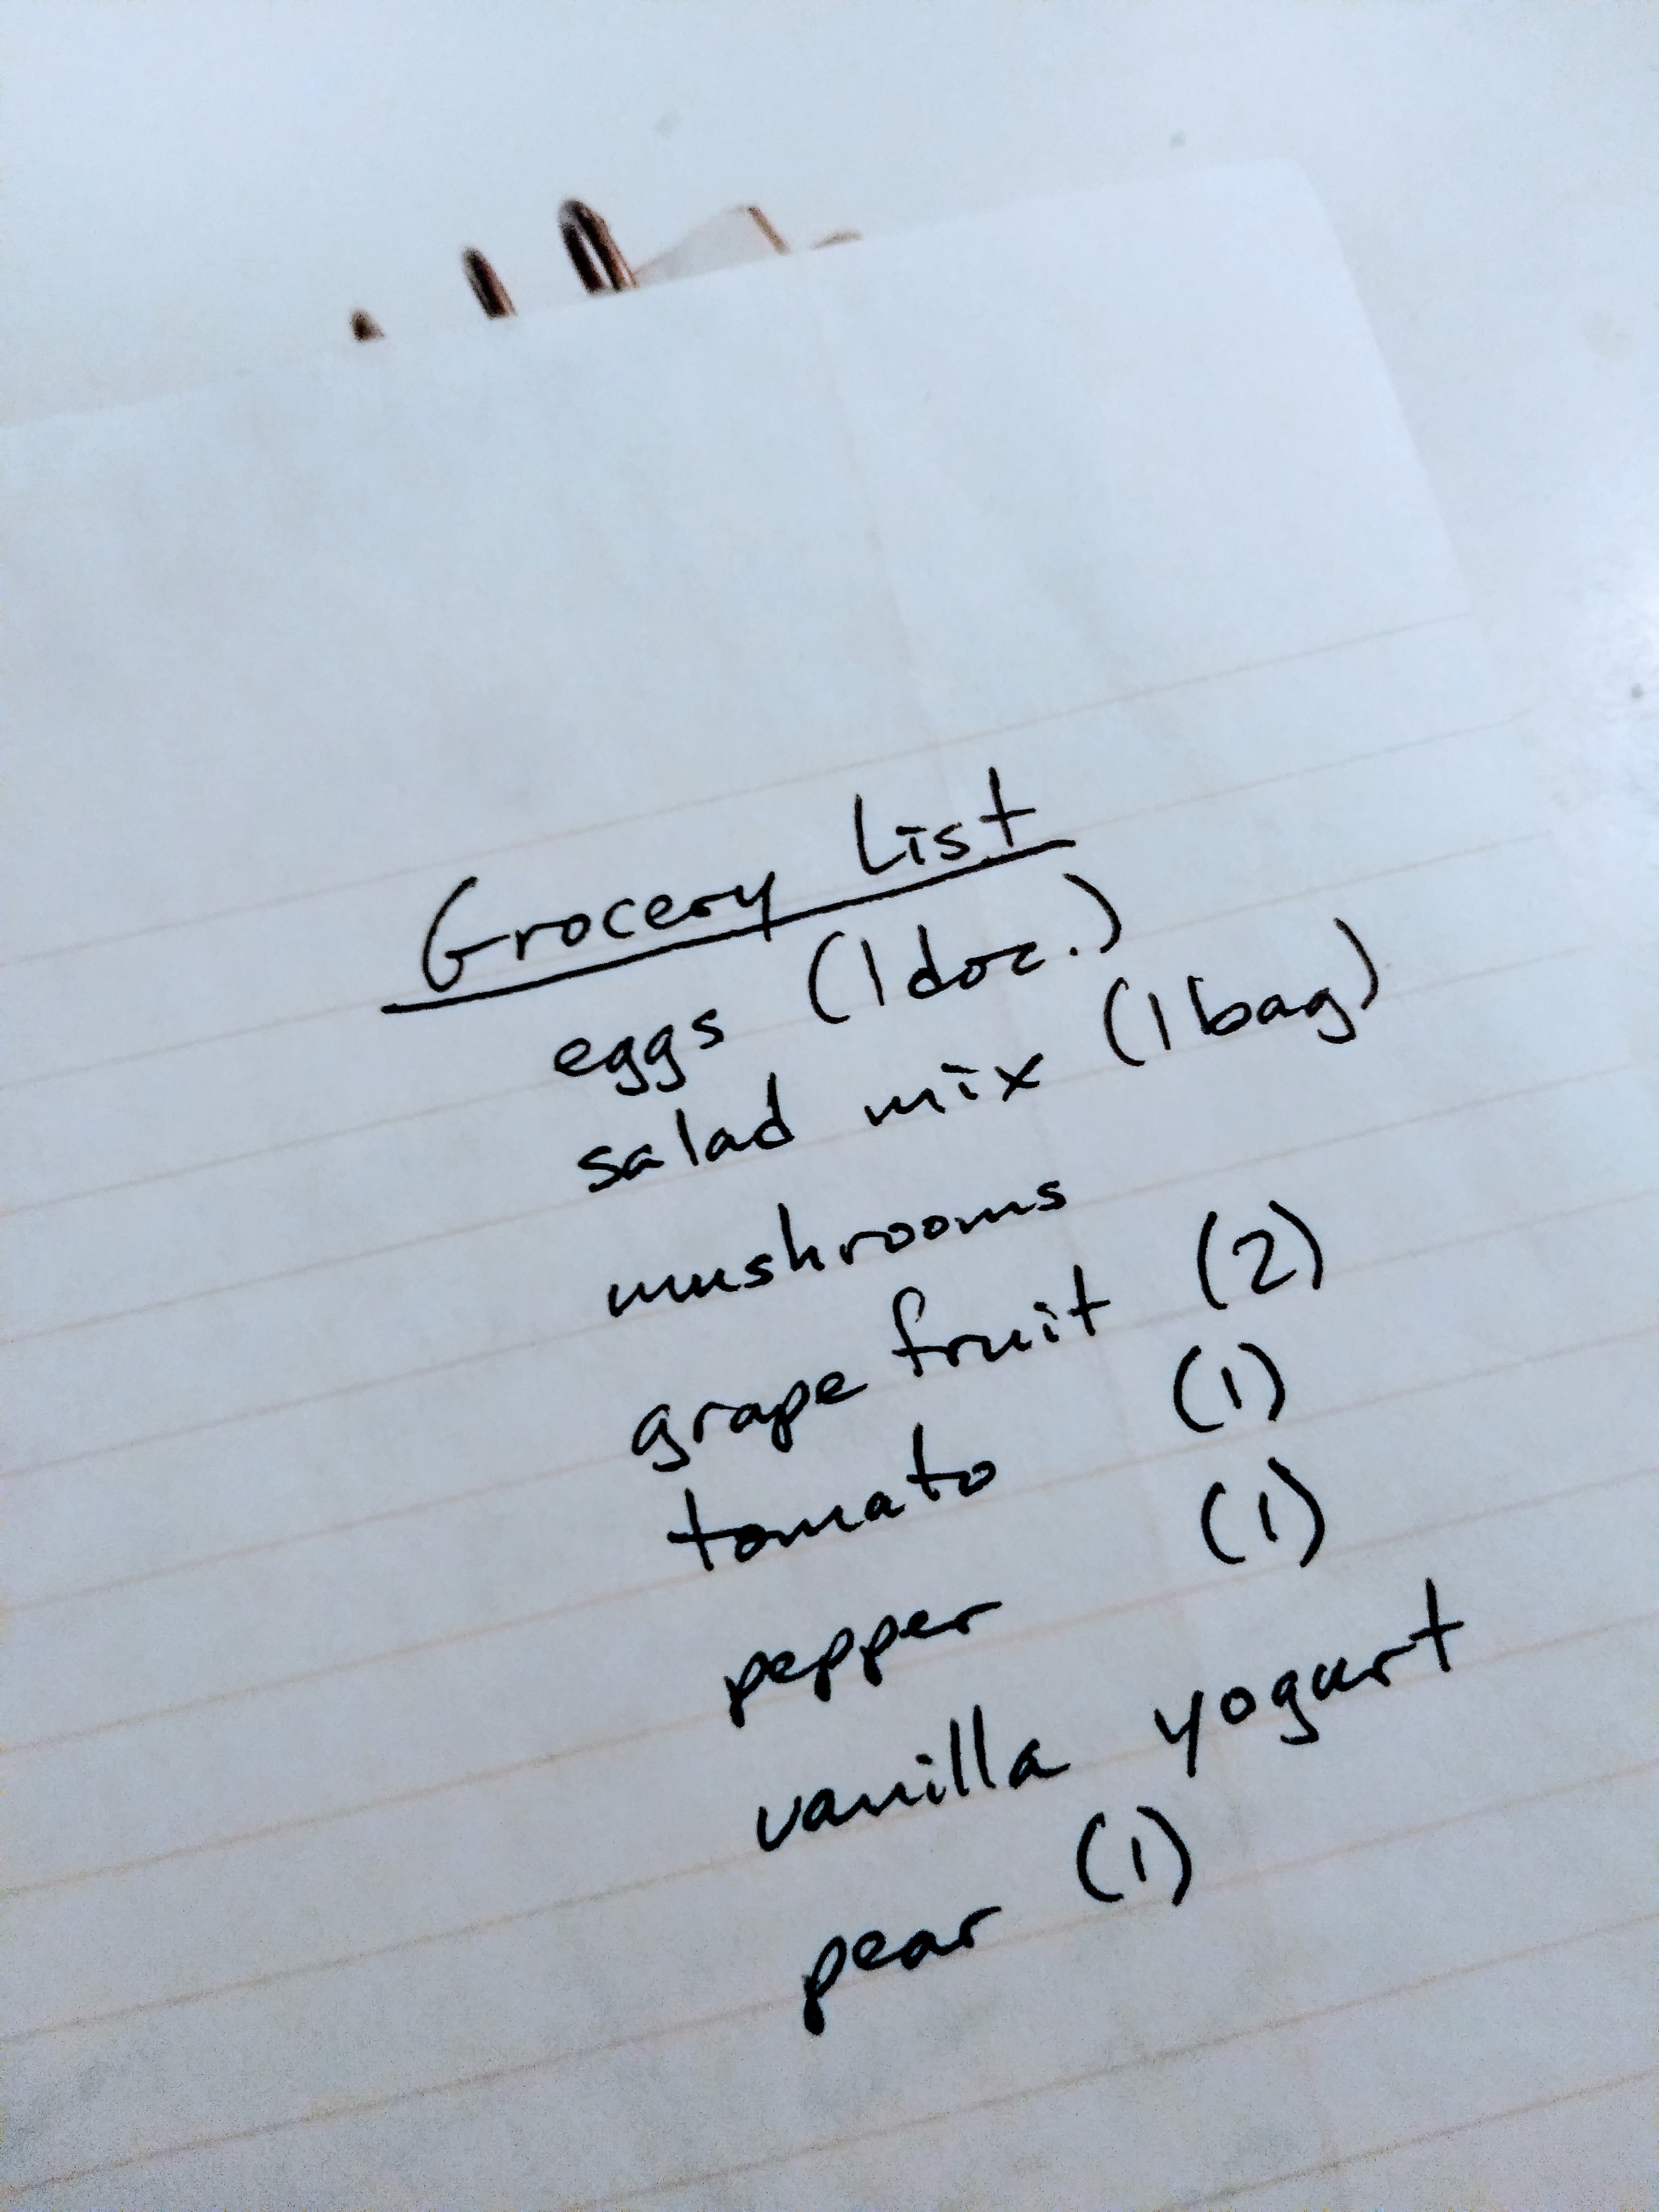 Grocery List
eggs (1 doz.)
salad mix (1 bag)
mushrooms
grape fruit (2)
tomato (1)
pepper (1)
vanilla yogurt
pear (1)